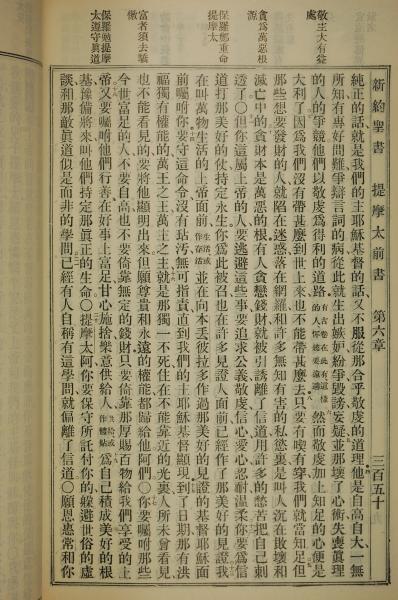 新約聖書 提摩太前書 第六章 三百五十
敬主大有益處
貪爲萬惡根源
保羅鄭重命提摩太
富者須去驕傲
保羅勉提摩太遵守眞道
純正的話就是我們的主耶穌基督的話又不服從那合乎敬虔的道理他是自高自大一無
所知有專好問難爭辯言詞的病從此就生出嫉妒紛爭毀謗妄疑並那壞了心術失喪眞理
的人的爭競他們以敬虔爲得利的道路
然而敬虔加上知足的心便是
大利了因爲我們沒有帶甚麼到世上來也不能帶甚麼去只要有喫有穿我們就當知足但
那些想要發財的人就陷在迷惑落在網羅和許多無知有害的私慾裏是叫人沉在敗壞和
滅亡中的貪財本是萬惡的根有人貪戀錢財就被引誘離了信道用許多的愁苦把自己刺
透了○但你這屬上帝的人要逃避這些事要追求公義敬虔信心愛心忍耐溫柔你要爲信
道打那美好的仗持定永生你爲此被召也在許多見證人面前已經作了那美好的見證我
在叫萬物生活的上帝面前
並在向本丟彼拉多作過那美好的見證的基督耶穌面
前囑咐你要守這命令沒有玷汚無可指責直到我們的主耶穌基督顯現到了日期那有洪
福獨有權能的萬王之王萬主之主就是那獨一不死住在不能靠近的光裏人所未曾看見
也不能看見的要將他顯明出來但願尊貴和永遠的權能都歸給他阿們○你要囑咐那些
今世富足的人不要自高也不要倚靠無定的錢財只要倚靠那厚賜百物給我們享受的上
帝又要囑咐他們行善在好事上富足甘心施捨樂意供給人
爲自己積成美好的根
基豫備將來叫他們持定那眞正的生命○提摩太阿你要保守所託付你的躲避世俗的虛
談和那敵眞道似是而非的學問已經有人自稱有這學問就偏離了信道○願恩惠常和你